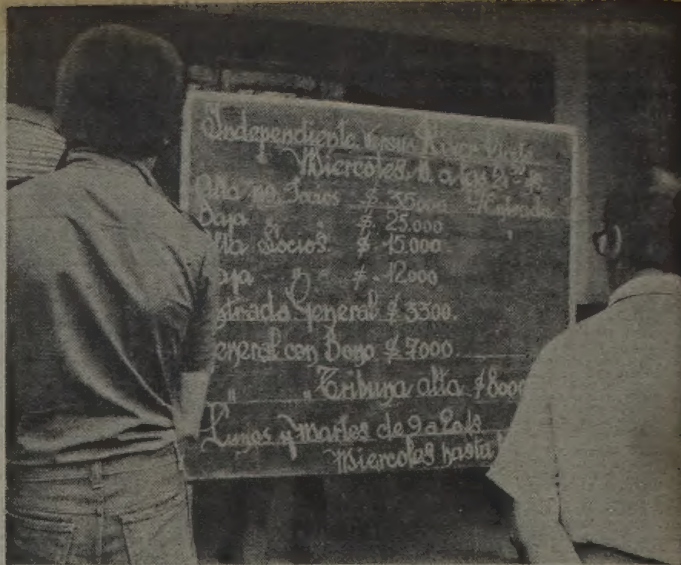 Independiente versus River Plate
Miercoles. a las 21
Alta no Socios $ 35000 c/Entrada
Baja " $ 25.000 "
Alta Socios $ 15.000
Baja " $ 12000
Entrada general $ 3300.
General con Bono $ 7000
" " Tribuna alta $ 8000
Lunes y Martes de 9 a 20 hs
Miercoles hasta